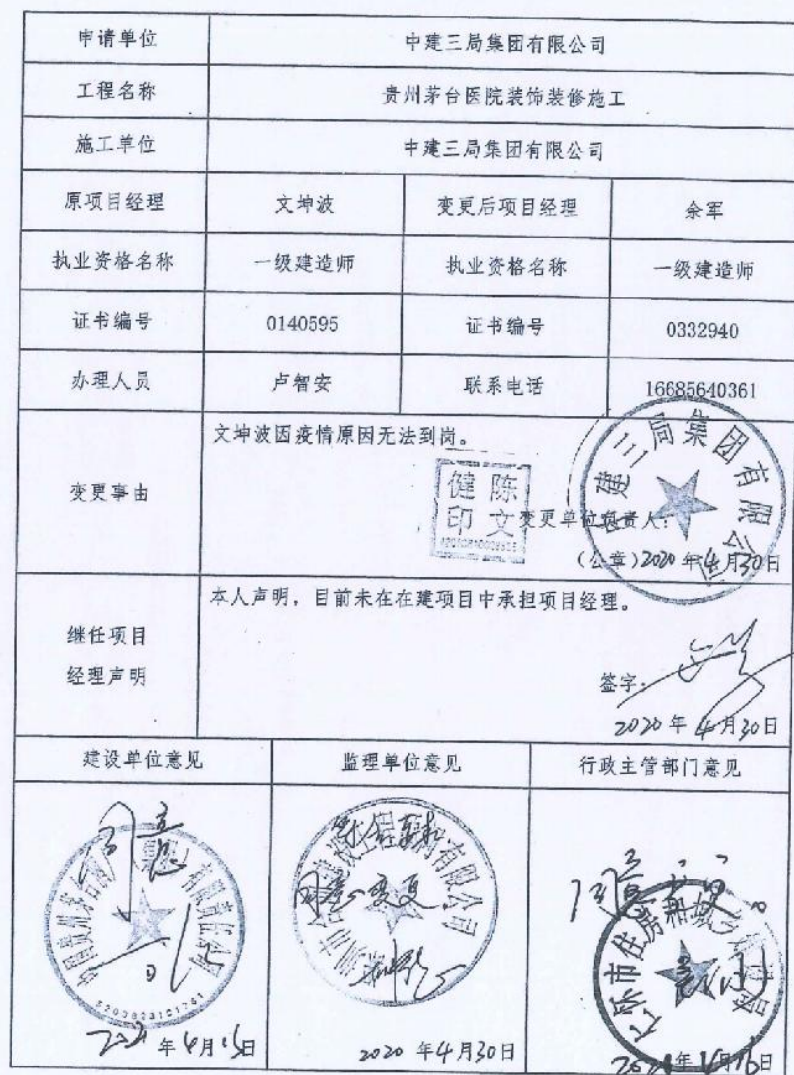 申请单位 中建三局集团有限公司
工程名称 贵州茅台医院装饰装修施工
施工单位 中建三局集团有限公司
原项目经理 文坤波 变更后项目经理 余军
执业资格名称 一级建造师 执业资格名称 一级建造师
证书编号 0140595 证书编号 0332940
办理人员 卢智安 联系电话 16685640361
变更事由
文坤波因疫情原因无法到岗。
中建三局集团有限公司
健陈
印文
变更单位负责人:
(公章)2020年4月30日
继任项目
经理声明
本人声明,目前未在在建项目中承担项目经理。
签字:
2020年4月30日
建设单位意见 监理单位意见 行政主管部门意见
同意
有限责任公司
年4月 日
同意变更
有限公司
2020年4月30日
同意变更。
仁怀市住房和城乡建设局
年 月 日